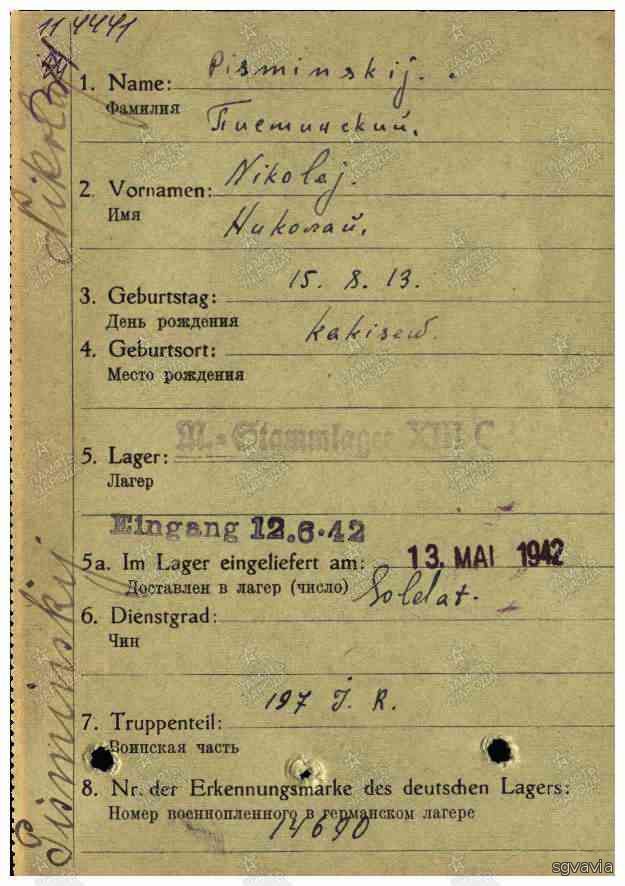 114441
1. Name: Pisminskij.
Фамилия
Писминский.
2. Vornamen: Nikolaj.
Имя
Николай.
3. Geburtstag: 15. 8. 13.
День рождения
4. Geburtsort:
Место рождения
M.-Stammlager XIII C
5. Lager:
Лагер
Eingang 12.6.42
5a. Im Lager eingeliefert am: 13. MAI 1942
Доставлен в лагер (число)
6. Dienstgrad: Soldat.
Чин
7. Truppenteil: 197 J. R.
Воинская часть
8. Nr. der Erkennungsmarke des deutschen Lagers:
Номер военнопленного в германском лагере
14690
Pisminskij Nikolaj
sgvavia